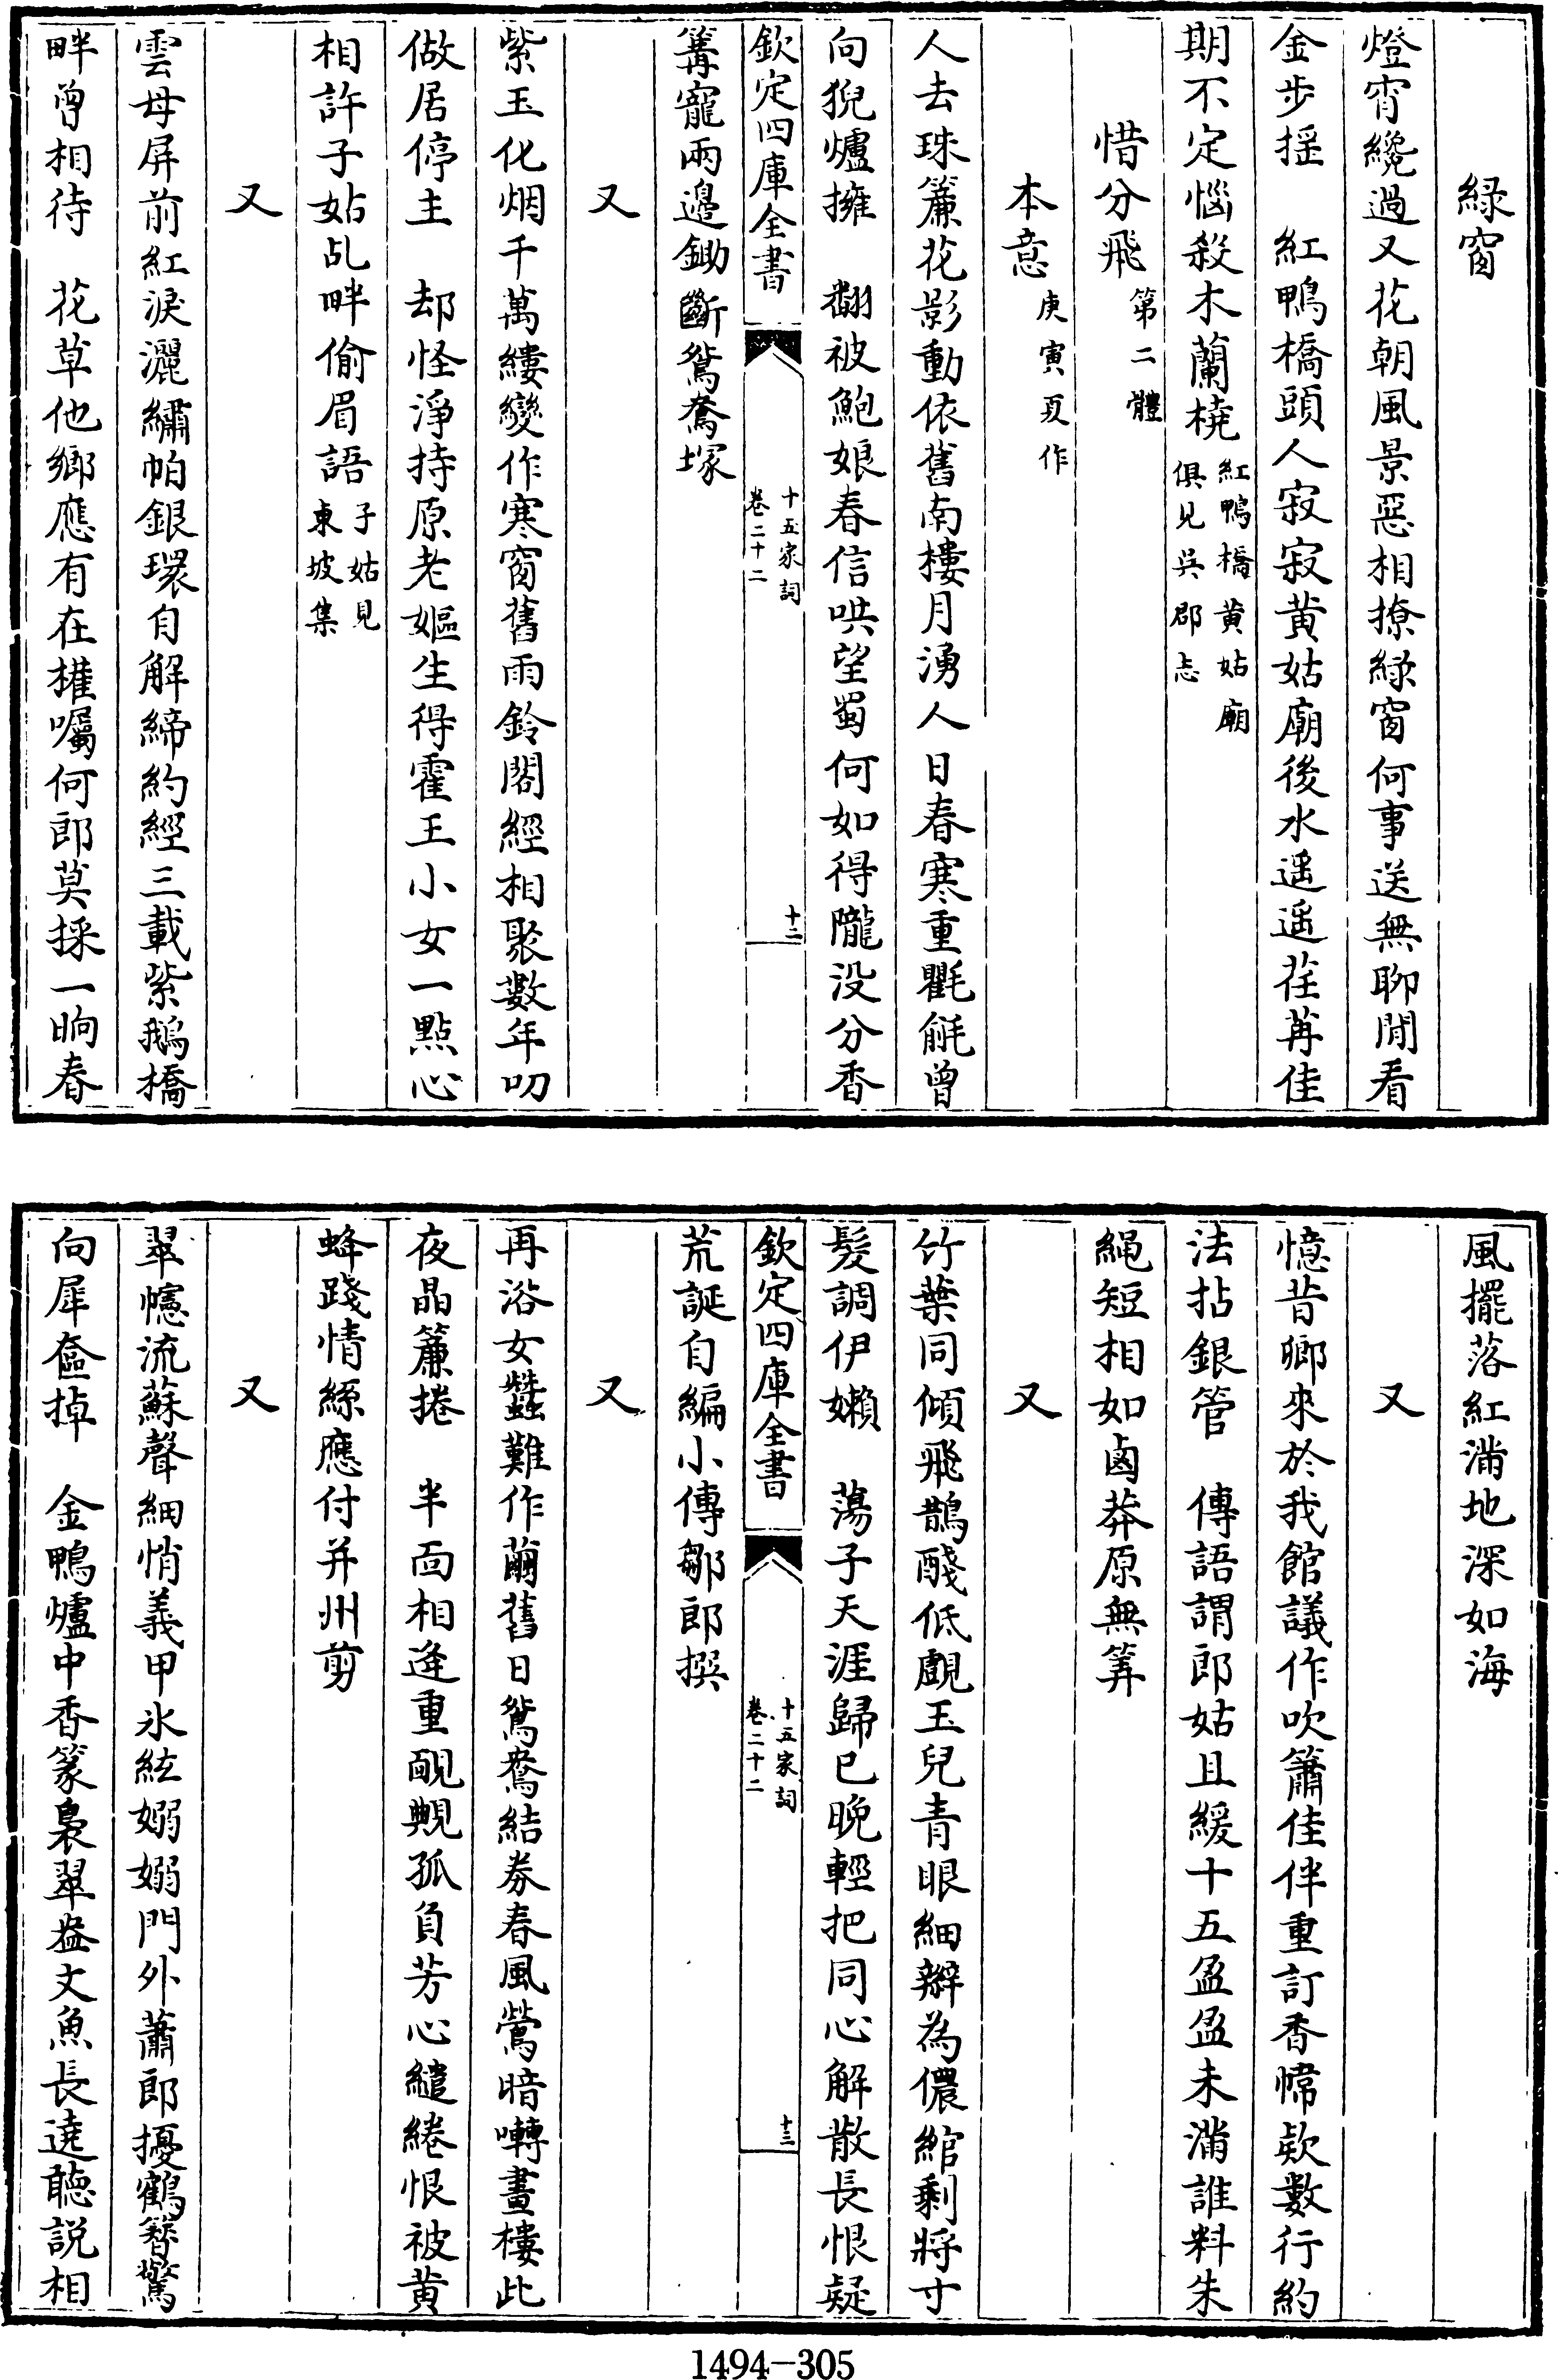 緑窗
燈宵纔過又花朝風景惡相撩緑窗何事送無聊閒看
金步揺　紅鴨橋頭人寂寂黄姑廟後水遥遥荏苒佳
期不定惱殺木蘭橈紅鴨橋黄姑廟俱見吳郡志
惜分飛第二體
本意庚寅夏作
人去珠簾花影動依舊南樓月湧人日春寒重氍毹曾
向猊爐擁　翻被鮑娘春信哄望蜀何如得隴没分香
欽定四庫全書
十五家詞
卷二十二
十二
篝寵兩邉鋤斷鴛鴦塚
又
紫玉化烟千萬縷變作寒窗舊雨鈴閣經相聚數年叨
做居停主　却怪淨持原老嫗生得霍王小女一點心
相許子姑乩畔偷眉語子姑見東坡集
又
雲母屏前紅淚灑繡帕銀環自解締約經三載紫鵝橋
畔曾相待　花草他鄉應有在㩁囑何郎莫採一晌春
風擺落紅滿地深如海
又
憶昔卿來於我館議作吹簫佳伴重訂香幃欵數行約
法拈銀管　傳語謂郎姑且緩十五盈盈未滿誰料朱
繩短相如鹵莽原無筭
又
竹葉同傾飛鵲醆低覷玉兒青眼細辮為儂綰剩將寸
髮調伊嬾　蕩子天涯歸已晚輕把同心解散長恨疑
欽定四庫全書
十五家詞
卷二十二
十三
荒誕自編小傳鄒郎撰
又
再浴女蠶難作繭舊日鴛鴦結券春風鶯暗囀畫樓此
夜晶簾捲　半面相逢重靦覥孤負芳心繾綣恨被黄
蜂踐情絲應付并州剪
又
翠幰流蘇聲細悄義甲氷絃嫋嫋門外蕭郎擾鶴簪驚
向犀奩掉　金鴨爐中香篆裊翠盎文魚長遶聽説相
1494-305